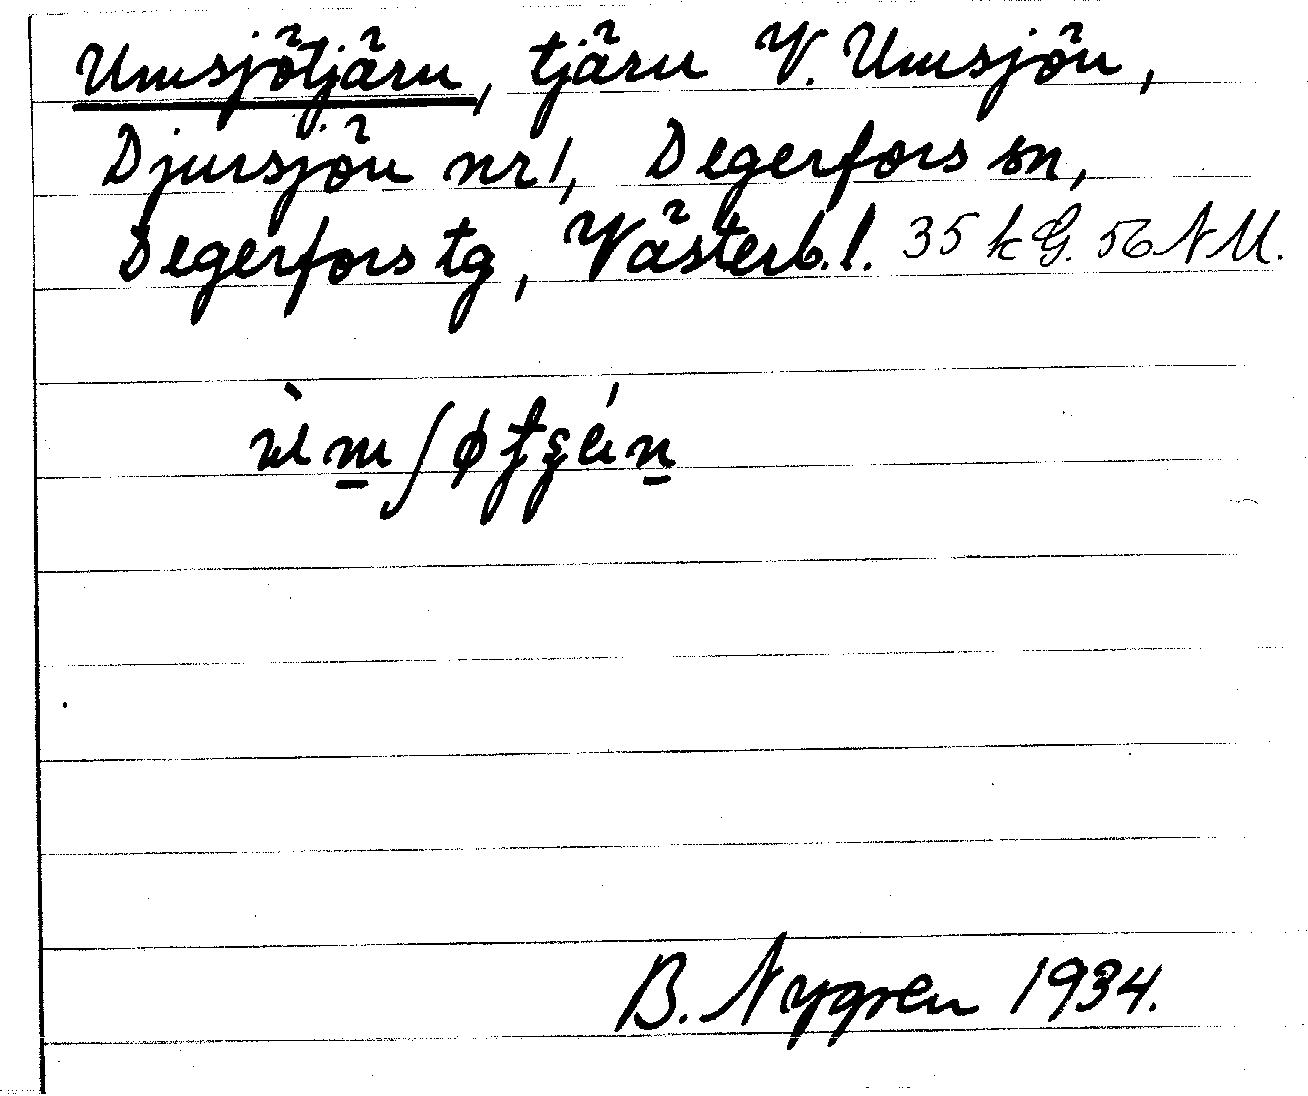 Umsjötjärn, tjärn V. Umsjön,
Djursjön nr 1, Degerfors sn,
Degerfors tg, Västerb. l. 35 k G. 56 N M.
B. Nygren 1934.